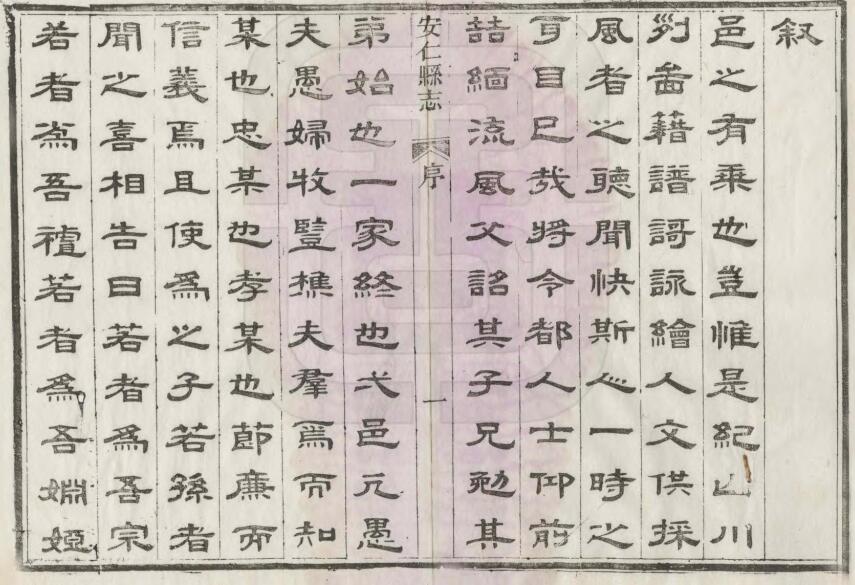 叙
邑之有乗也豈惟是紀山川
列啚籍譜謌詠繪人文供採
風者之聽聞快斯心一時之
耳目已哉將令都人士仰前
喆緬流風父詔其子兄勉其
安仁縣志 序 一
弟始也一家終也弌邑凡愚
夫愚婦牧豎樵夫羣焉而知
某也忠某也孝某也節廉而
信義焉且使爲之子若孫者
聞之喜相告曰若者爲吾宗
若者爲吾若者爲吾婣婭